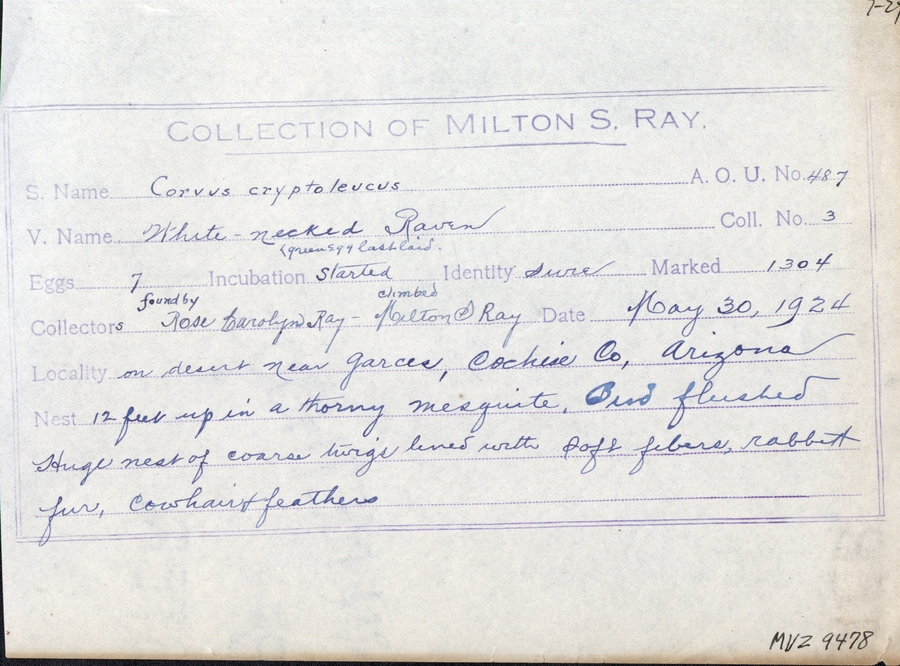 7-29
COLLECTION OF MILTON S. RAY.
S. Name Corvus cryptoleucus A. O. U. No. 487
V. Name White-necked Raven Coll. No. 3
(green egg last laid.
Eggs 7 Incubation Started Identity sure Marked 1304
found by climbed
Collectors Rose Carolyn Ray - Milton S Ray Date May 30, 1924
Locality on desert near Garces, Cochise Co, Arizona
Nest 12 feet up in a thorny mesquite, Bird flushed
Huge nest of coarse twigs lined with soft fibers, rabbit
fur, cowhair & feathers
MVZ 9478